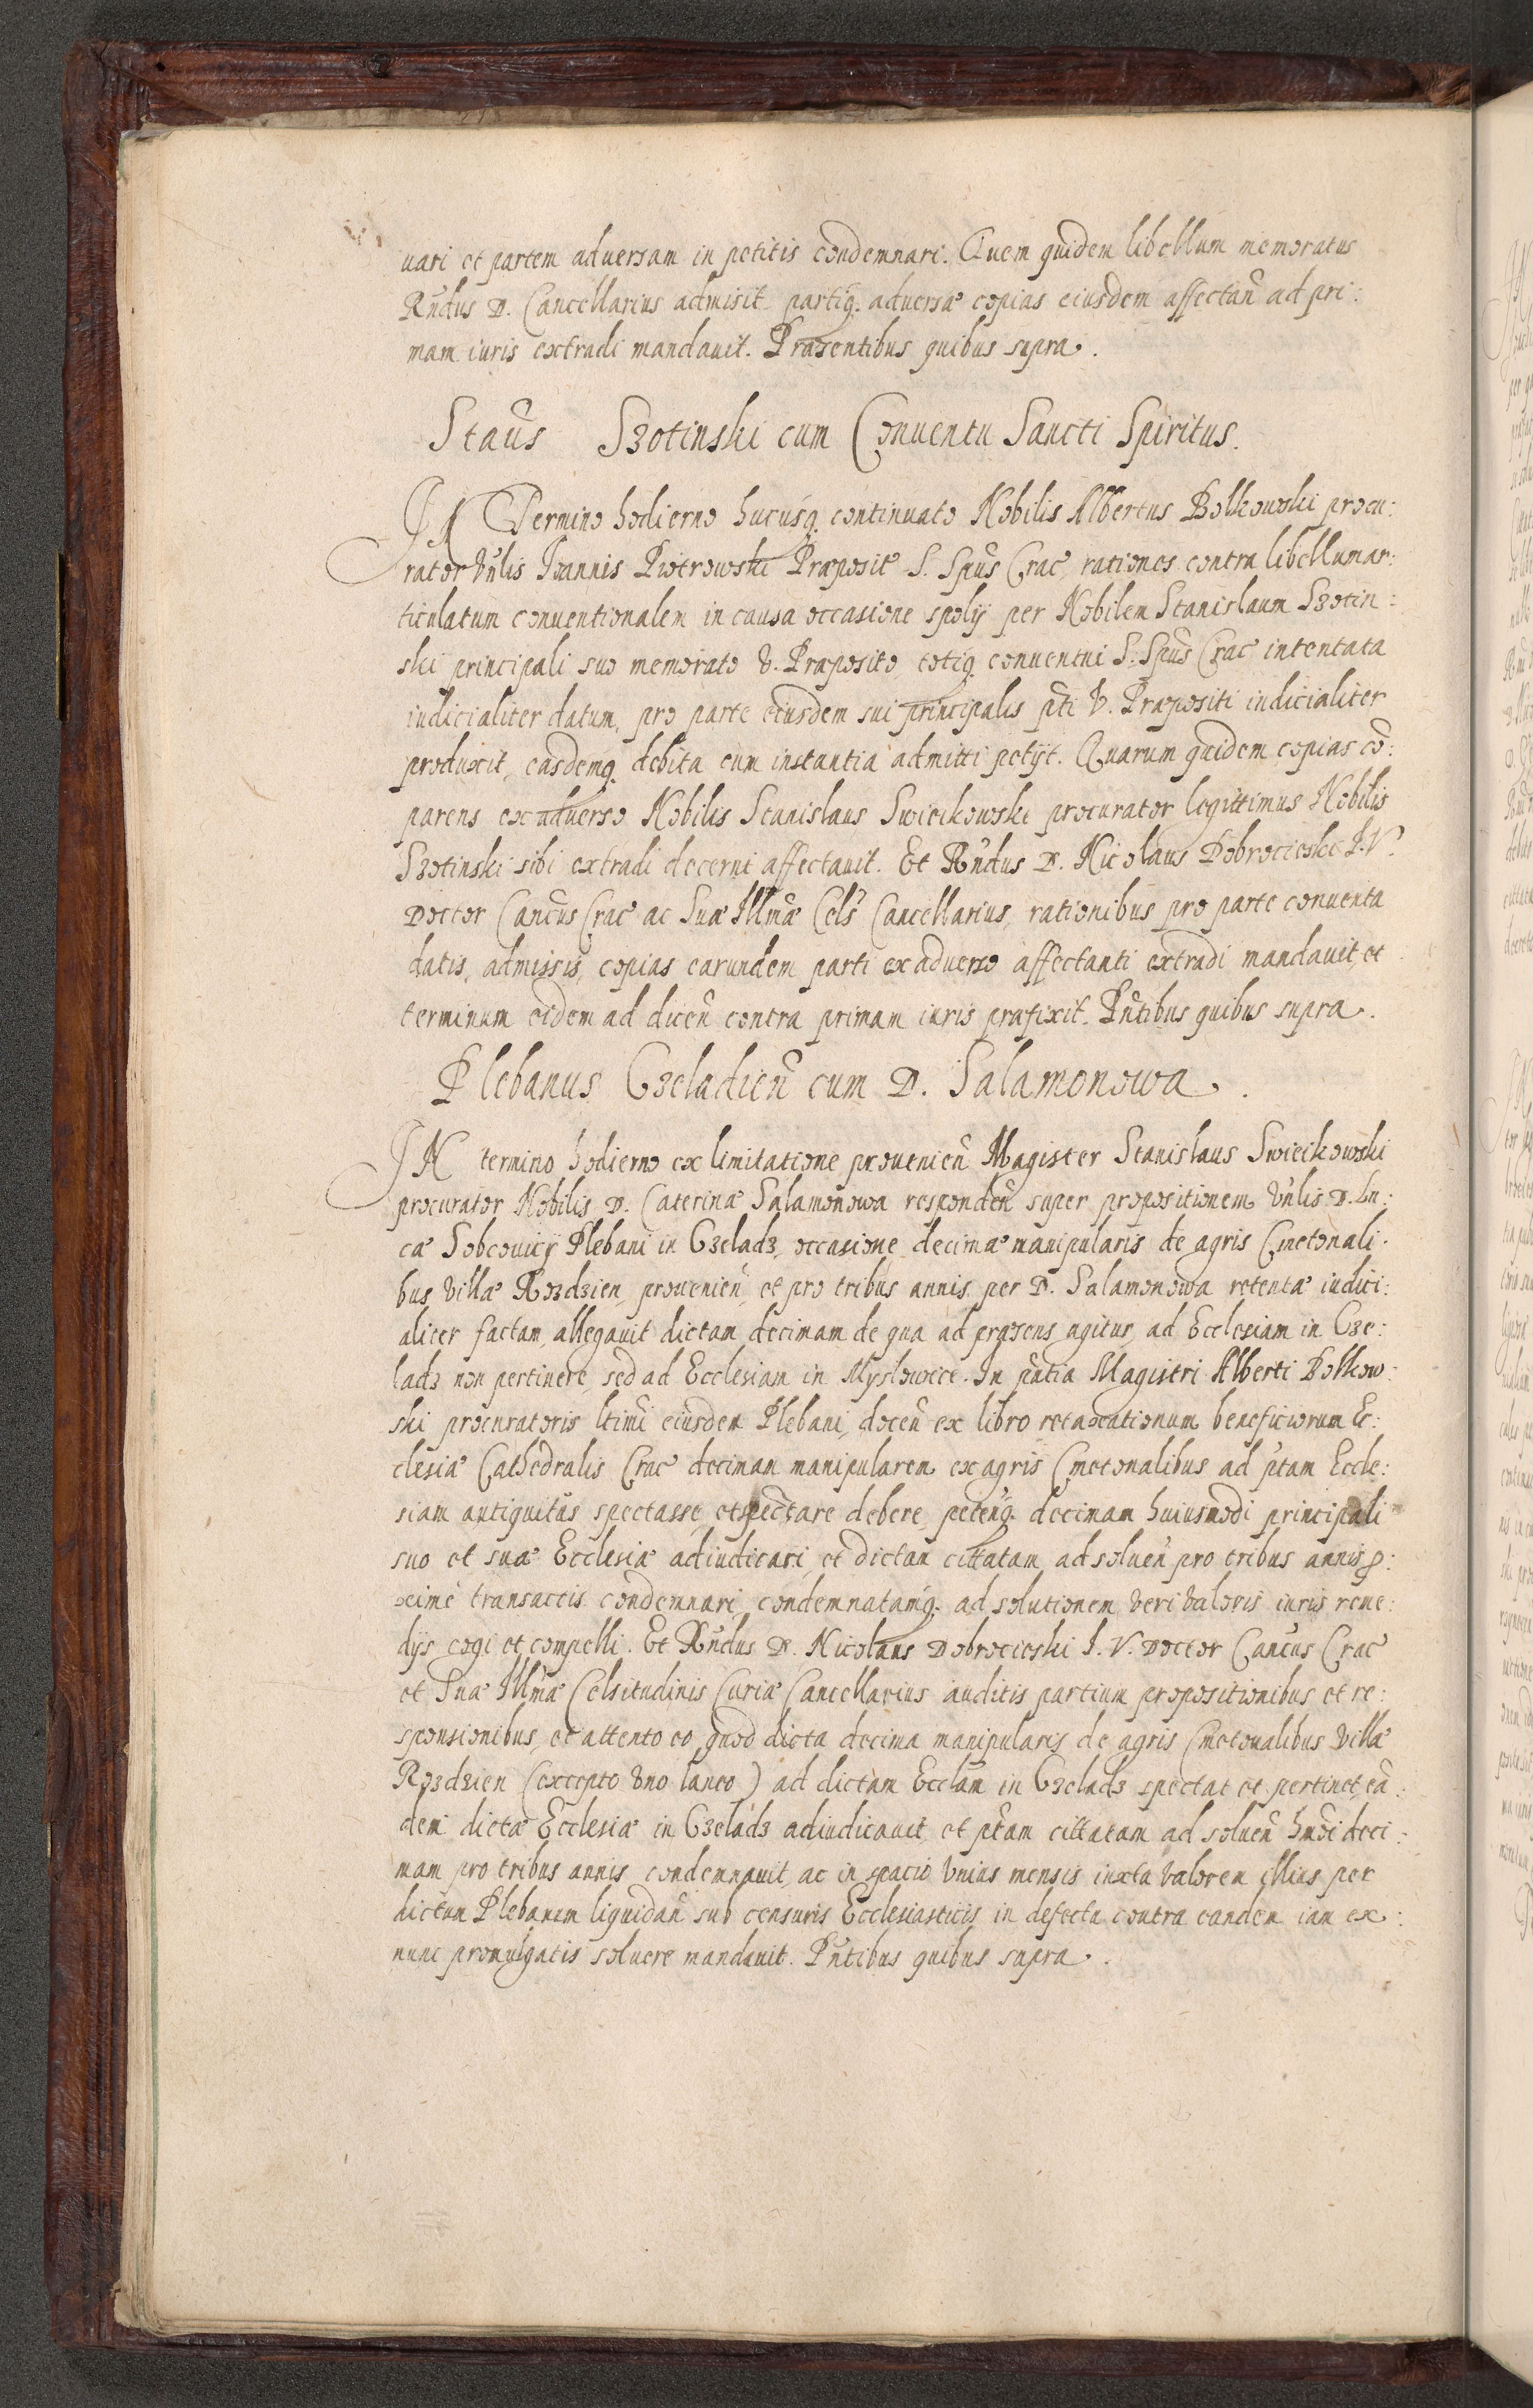 uari et partem aduersam in petitis condemnari. Quem quidem libellum memoratus
Rńdus D. Cancellarius admisit partiq. aduersæ copias eiusdem affectan̄ ad pri:
mam iuris extradi mandauit. Præsentibus quibus supra.
Staūs Szotinski cum Conuentu Sancti Spiritus.
IN Termino hodierno hucusq. continuato Nobilis Albertus Bolkowski procu:
rator Vn̄lis Ioannis Piotrowski Præposit̄ S. Spūs Crac̄ rationes contra libellum ar:
ticulatum conuentionalem in causa occasione spolij per Nobilem Stanislaum Szotin:
ski principali suo memorato V. Præposito totiq. conuentui S. Spūs Crac̄ intentata
iudicialiter datum, pro parte eiusdem sui principalis p̄ti V. Præpositi iudicialiter
produxit, easdemq. debita cum instantia admitti petijt. Quarum quidem copias cō:
parens ex aduerso Nobilis Stanislaus Swiecikowski procurator legittimus Nobilis
Szotinski sibi extradi decerni affectauit. Et Rńdus D. Nicolaus Dobrocieski I.V.
Doctor Cancūs Crac̄ ac Suæ Illmæ Cels̄ Cancellarius, rationibus pro parte conuenta
datis, admissis, copias earundem parti ex aduerso affectanti extradi mandauit, et
terminum eidem ad dicen̄ contra primam iuris præfixit. Pn̄tibus quibus supra.
Plebanus Czeladien̄ cum D. Salamonowa.
IN termino hodierno ex limitatione prouenien̄ Magister Stanislaus Swiecikowski
procurator Nobilis D. Caterinæ Salamonowa responden̄ super propositionem Vn̄lis D. Lu:
cæ Sobcouicÿ Plebani in Czeladz, occasione decimæ manipularis de agris Cmetonali:
bus villæ Rozdzien, prouenien̄, et pro tribus annis per D. Salamonowa retentæ iudici:
aliter factam, allegauit dictam decimam de qua ad præsens agitur, ad Ecclesiam in Cze:
ladz non pertinere, sed ad Ecclesiam in Myslowice. In pn̄tia Magistri Alberti Bolkow:
ski procuratoris ltimi eiusdem Plebani, docen̄ ex libro retaxationum beneficiorum Ec:
clesiæ Cathedralis Crac̄ decimam manipularem ex agris Cmetonalibus ad p̄tam Eccle:
siam antiquitùs spectasse, et spectare debere, peten̄q. decimam huiusmodi principali
suo et suæ Ecclesiæ adiudicari, et dictam cittatam ad soluen̄ pro tribus annis p:
ximè transactis condemnari, condemnatamq. ad solutionem veri valoris iuris reme:
dijs cogi et compelli. Et Rńdus D. Nicolaus Dobrocieski I. V. Doctor Cancūs Crac̄
et Suæ Illmæ Celsitudinis Curiæ Cancellarius auditis partium propositionibus et re:
sponsionibus, et attento eo, quod dicta decima manipularis de agris Cmetonalibus villæ
Rozdzien (excepto vno laneo) ad dictam Ecclām in Czeladz spectat et pertinet, eā:
dem dictæ Ecclesiæ in Czeladz adiudicauit, et p̄tam cittatam ad soluen̄ hmōi deci:
mam pro tribus annis condemnauit, ac in spacio vnius mensis iuxta valorem illius per
dictum Plebanum liquidan̄ sub censuris Ecclesiasticis in defectu contra eandem iam ex:
nunc promulgatis soluere mandauit. Pn̄tibus quibus supra.